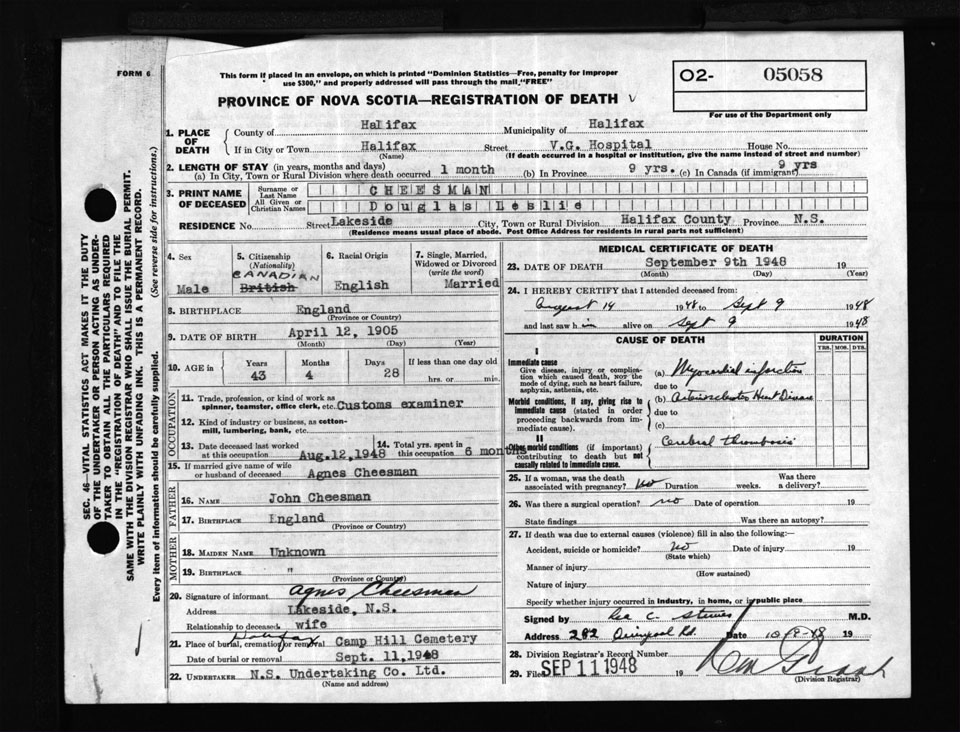 FORM 6
This form if placed in an envelope, on which is printed "Dominion Statistics—Free, penalty for improper
use $300," and properly addressed will pass through the mail "FREE"
O2- 05058
For use of the Department only
PROVINCE OF NOVA SCOTIA—REGISTRATION OF DEATH
SEC. 46—VITAL STATISTICS ACT MAKES IT THE DUTY
OF THE UNDERTAKER OR PERSON ACTING AS UNDER-
TAKER TO OBTAIN ALL THE PARTICULARS REQUIRED
IN THE "REGISTRATION OF DEATH" AND TO FILE THE
SAME WITH THE DIVISION REGISTRAR WHO SHALL ISSUE THE BURIAL PERMIT.
WRITE PLAINLY WITH UNFADING INK. THIS IS A PERMANENT RECORD.
Every item of information should be carefully supplied. (See reverse side for instructions.)
1. PLACE OF DEATH
County of Halifax Municipality of Halifax
If in City or Town Halifax Street V.G. Hospital House No.
(Name) (If death occurred in a hospital or institution, give the name instead of street and number)
2. LENGTH OF STAY (in years, months and days)
(a) In City, Town or Rural Division where death occurred 1 month (b) In Province 9 yrs. (c) In Canada (if immigrant) 9 yrs
3. PRINT NAME OF DECEASED
Surname or Last Name CHEESMAN
All Given or Christian Names Douglas Leslie
RESIDENCE No. Street Lakeside City, Town or Rural Division Halifax County Province N.S.
(Residence means usual place of abode. Post Office Address for residents in rural parts not sufficient)
4. Sex
Male
5. Citizenship
(Nationality)
CANADIAN
British
6. Racial Origin
English
7. Single, Married,
Widowed or Divorced
(write the word)
Married
8. BIRTHPLACE England
(Province or Country)
9. DATE OF BIRTH April 12, 1905
(Month) (Day) (Year)
10. AGE in Years 43 Months 4 Days 28 If less than one day old
hrs. or min.
OCCUPATION
11. Trade, profession, or kind of work as
spinner, teamster, office clerk, etc. Customs examiner
12. Kind of industry or business, as cotton-
mill, lumbering, bank, etc.
13. Date deceased last worked
at this occupation Aug.12,1948
14. Total yrs. spent in
this occupation 6 months
15. If married give name of wife
or husband of deceased Agnes Cheesman
FATHER
16. NAME John Cheesman
17. BIRTHPLACE England
(Province or Country)
MOTHER
18. MAIDEN NAME Unknown
19. BIRTHPLACE "
(Province or Country)
20. Signature of informant Agnes Cheesman
Address Lakeside, N.S.
Relationship to deceased wife
21. Place of burial, cremation or removal Halifax Camp Hill Cemetery
Date of burial or removal Sept. 11,1948
22. UNDERTAKER N.S. Undertaking Co. Ltd.
(Name and address)
MEDICAL CERTIFICATE OF DEATH
23. DATE OF DEATH September 9th 1948 19
(Month) (Day) (Year)
24. I HEREBY CERTIFY that I attended deceased from:
August 14 1948 to Sept 9 1948
and last saw him alive on Sept 9 1948
CAUSE OF DEATH
DURATION
YRS. MOS. DYS.
I
Immediate cause
Give disease, injury or complica-
tion which caused death, NOT the
mode of dying, such as heart failure,
asphyxia, asthenia, etc.
(a) Myocardial infarction
due to
Morbid conditions, if any, giving rise to
immediate cause (stated in order
proceeding backwards from im-
mediate cause).
(b) Arteriosclerotic Heart Disease
due to
(c)
II
Other morbid conditions (if important)
contributing to death but not
causally related to immediate cause.
Cerebral thrombosis
25. If a woman, was the death
associated with pregnancy? No Duration weeks. Was there
a delivery?
26. Was there a surgical operation? no Date of operation 19
State findings Was there an autopsy?
27. If death was due to external causes (violence) fill in also the following:—
Accident, suicide or homicide? No Date of injury 19
(State which)
Manner of injury
(How sustained)
Nature of injury
Specify whether injury occurred in industry, in home, or in public place
Signed by C. M.D.
Address 282 Quinpool Rd. Date 10-9-48 19
28. Division Registrar's Record Number
29. Filed SEP 11 1948 19
(Division Registrar)